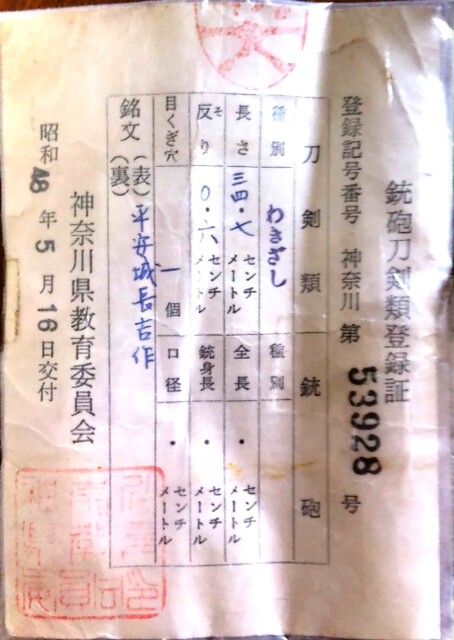 銃砲刀剣類登録証
登録記号番号 神奈川 第 53928 号
刀剣類 銃砲
種別 わきざし 種別
長さ 三四・七 センチメートル 全長 ・ センチメートル
反り そ 〇・六 センチメートル 銃身長 ・ センチメートル
目くぎ穴 一 個 口径 ・ センチメートル
銘文 (表) 平安城長吉作
(裏)
神奈川県教育委員会
昭和 48 年 5 月 16 日交付